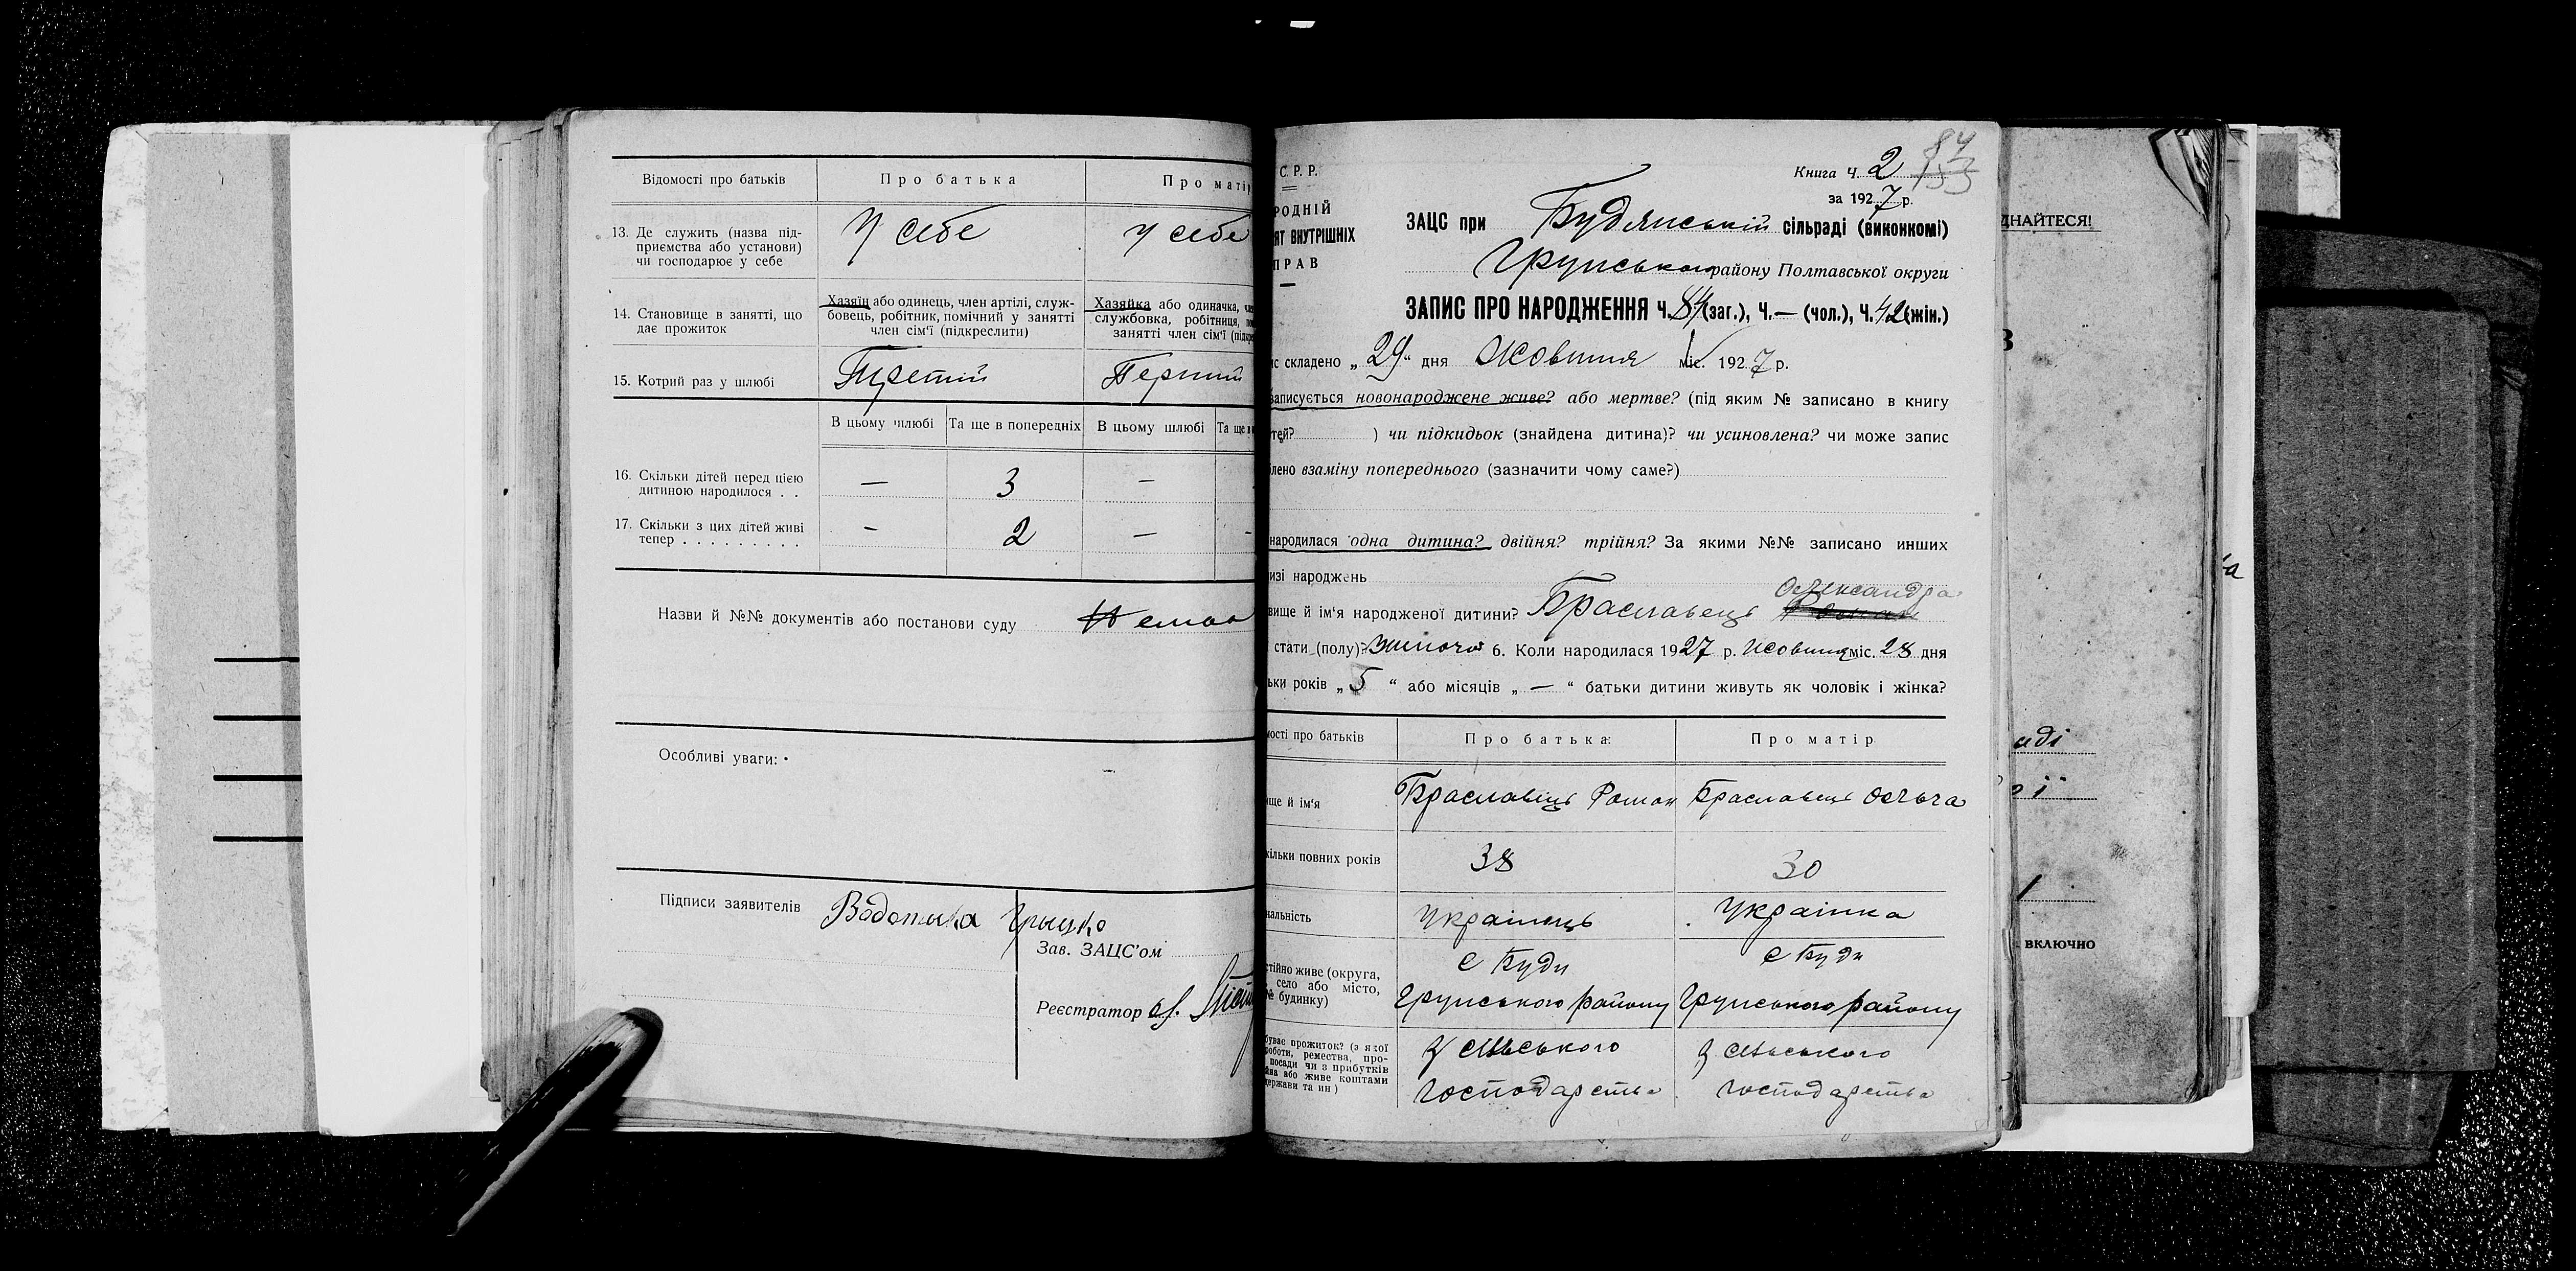 Відомості про батьків
Про батька
Про матір
13. Де служить (назва під-
приємства або установи)
чи господарює у себе
У себе
у себе
14. Становище в занятті, що
дає прожиток
Хазяїн або одинець, член артілі, служ-
бовець, робітник, помічний у занятті
член сім'ї (підкреслити)
Хазяйка або одиначка,
службовка, робітниця,
занятті член сім'ї
15. Котрий раз у шлюбі
Третій
Перший
В цьому шлюбі
Та ще в попередніх
В цьому шлюбі
Та ще в
16. Скільки дітей перед цією
дитиною народилося . .
—
3
—
17. Скільки з цих дітей живі
тепер . . . . . . . . .
—
2
—
-
Назви й №№ документів або постанови суду
Особливі уваги:
Підписи заявителів
Грыцко
Зав. ЗАЦС'ом
Реєстратор
С. Р. Р.
РОДНІЙ
ЯТ ВНУТРІШНІХ
ПРАВ
Книга ч. 2
84
за 1927 р.
ЗАЦС при Будянській сільраді (виконкомі)
Грунського району Полтавської округи
ЗАПИС ПРО НАРОДЖЕННЯ Ч. 84 (заг.), Ч. — (чол.), Ч. 42 (жін.)
ис складено „29“ дня Жовтня міс. 1927 р.
записується новонароджене живе? або мертве? (під яким № записано в книгу
тей? ) чи підкидьок (знайдена дитина)? чи усиновлена? чи може запис
лено взаміну попереднього (зазначити чому саме?)
народилася одна дитина? двійня? трійня? За якими №№ записано инших
изі народжень
Олександра
вище й ім'я народженої дитини? Браславець
стати (полу)? жіночої 6. Коли народилася 1927 р. жовтня міс. 28 дня
ьки років „5“ або місяців „—“ батьки дитини живуть як чоловік і жінка?
мості про батьків
Про батька:
Про матір
ище й ім'я
Браславець Роман
Браславець Ольга
кільки повних років
38
30
нальність
Українець
Українка
стійно живе (округа,
село або місто,
№ будинку)
с Буди
Грунського району
с Буди
Грунського району
буває прожиток? (з якої
роботи, ремества, про-
посади чи з прибутків
йва або живе коштами
держави та ин)
З сільського
господарства
З сільського
господарства
ДНАЙТЕСЯ!
В
аді
ії
включно